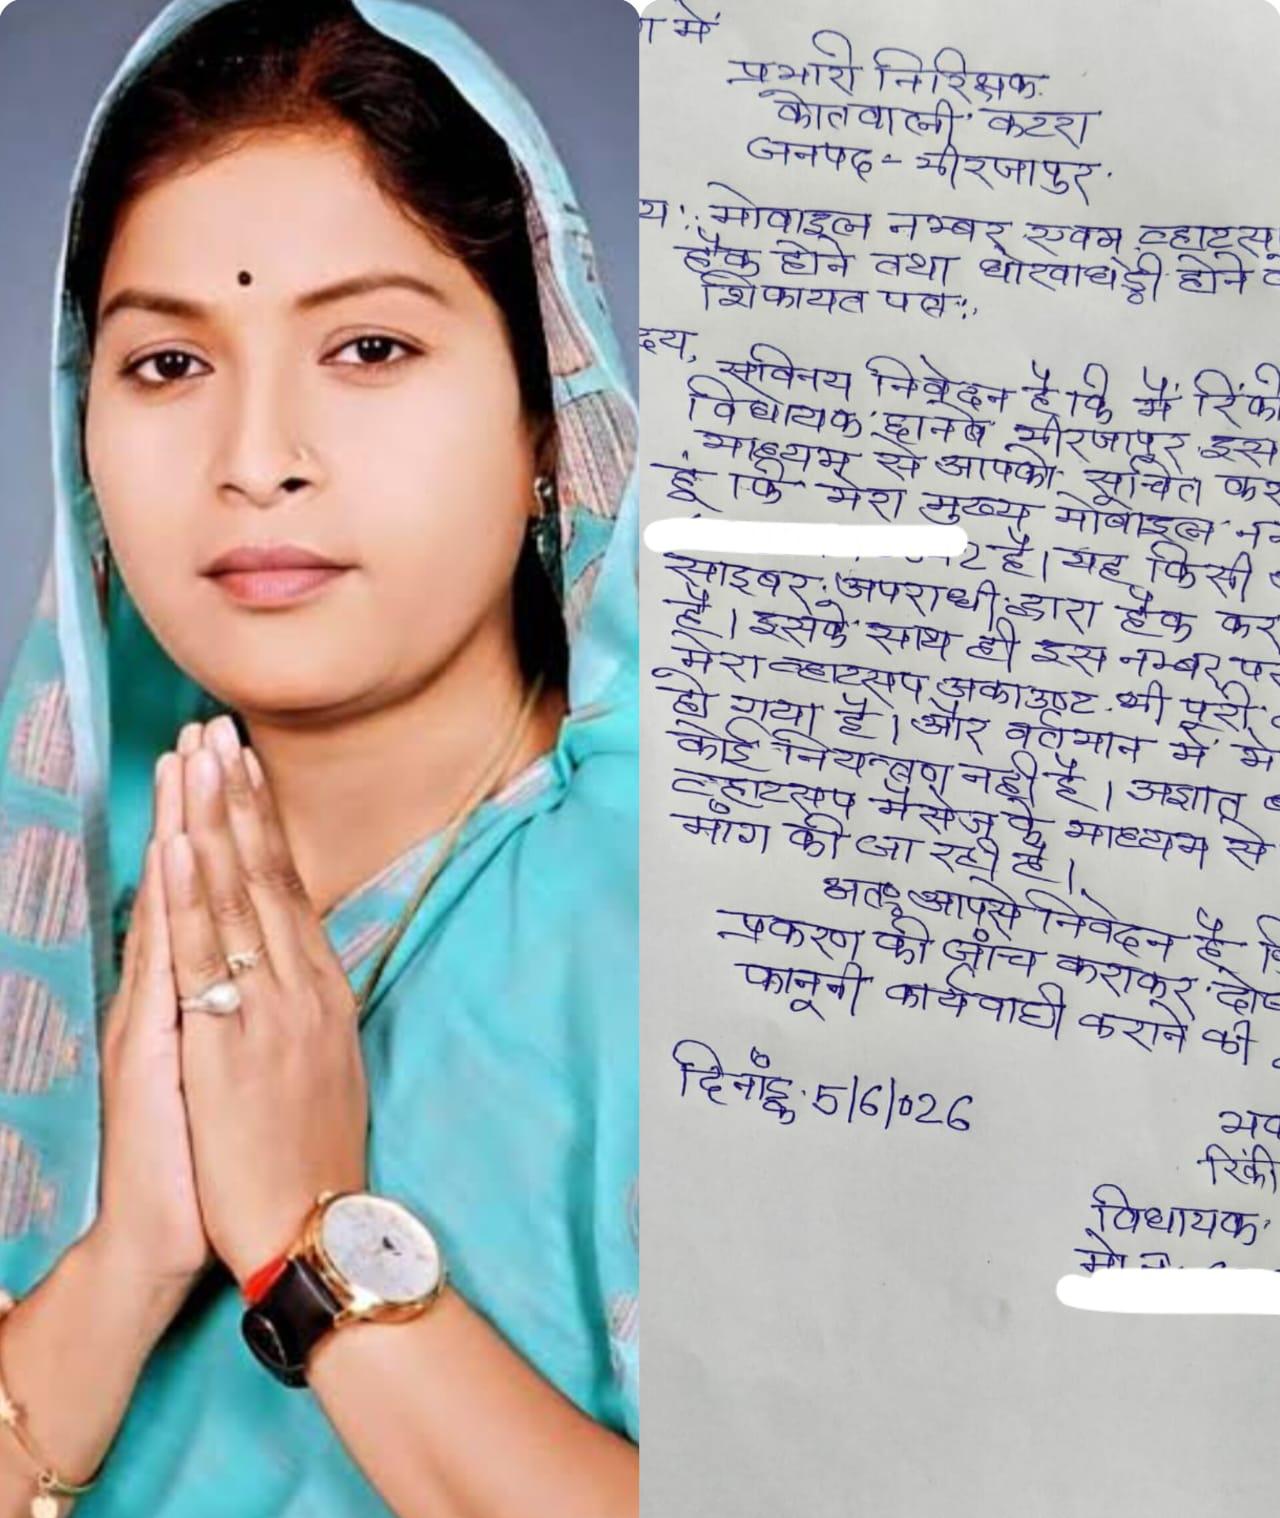 में
प्रभारी निरिक्षक
कोतवाली कटरा
जनपद - मीरजापुर
मोबाइल नम्बर एवम व्हाटस
हैक होने तथा धोखाधड़ी होने
शिकायत पत्र :
सविनय निवेदन है कि मैं रिंकी
विधायक छानबे मीरजापुर इस
माध्यम से आपको सूचित कर
हूं कि मेरा मुख्य मोबाइल
है। यह किसी
साइबर अपराधी द्वारा हैक कर
है। इसके साथ ही इस नम्बर पर
मेरा व्हाटसप अकाउण्ट भी पूरी
हो गया है। और वर्तमान में
कोई नियन्त्रण नही है। अज्ञात
व्हाटसप मैसेज के माध्यम से
मांग की जा रही है।
अतः आपसे निवेदन है
प्रकरण की जांच कराकर
कानूनी कार्यवाही कराने की
दिनाँङ्क 5/6/026
रिंकी
विधायक